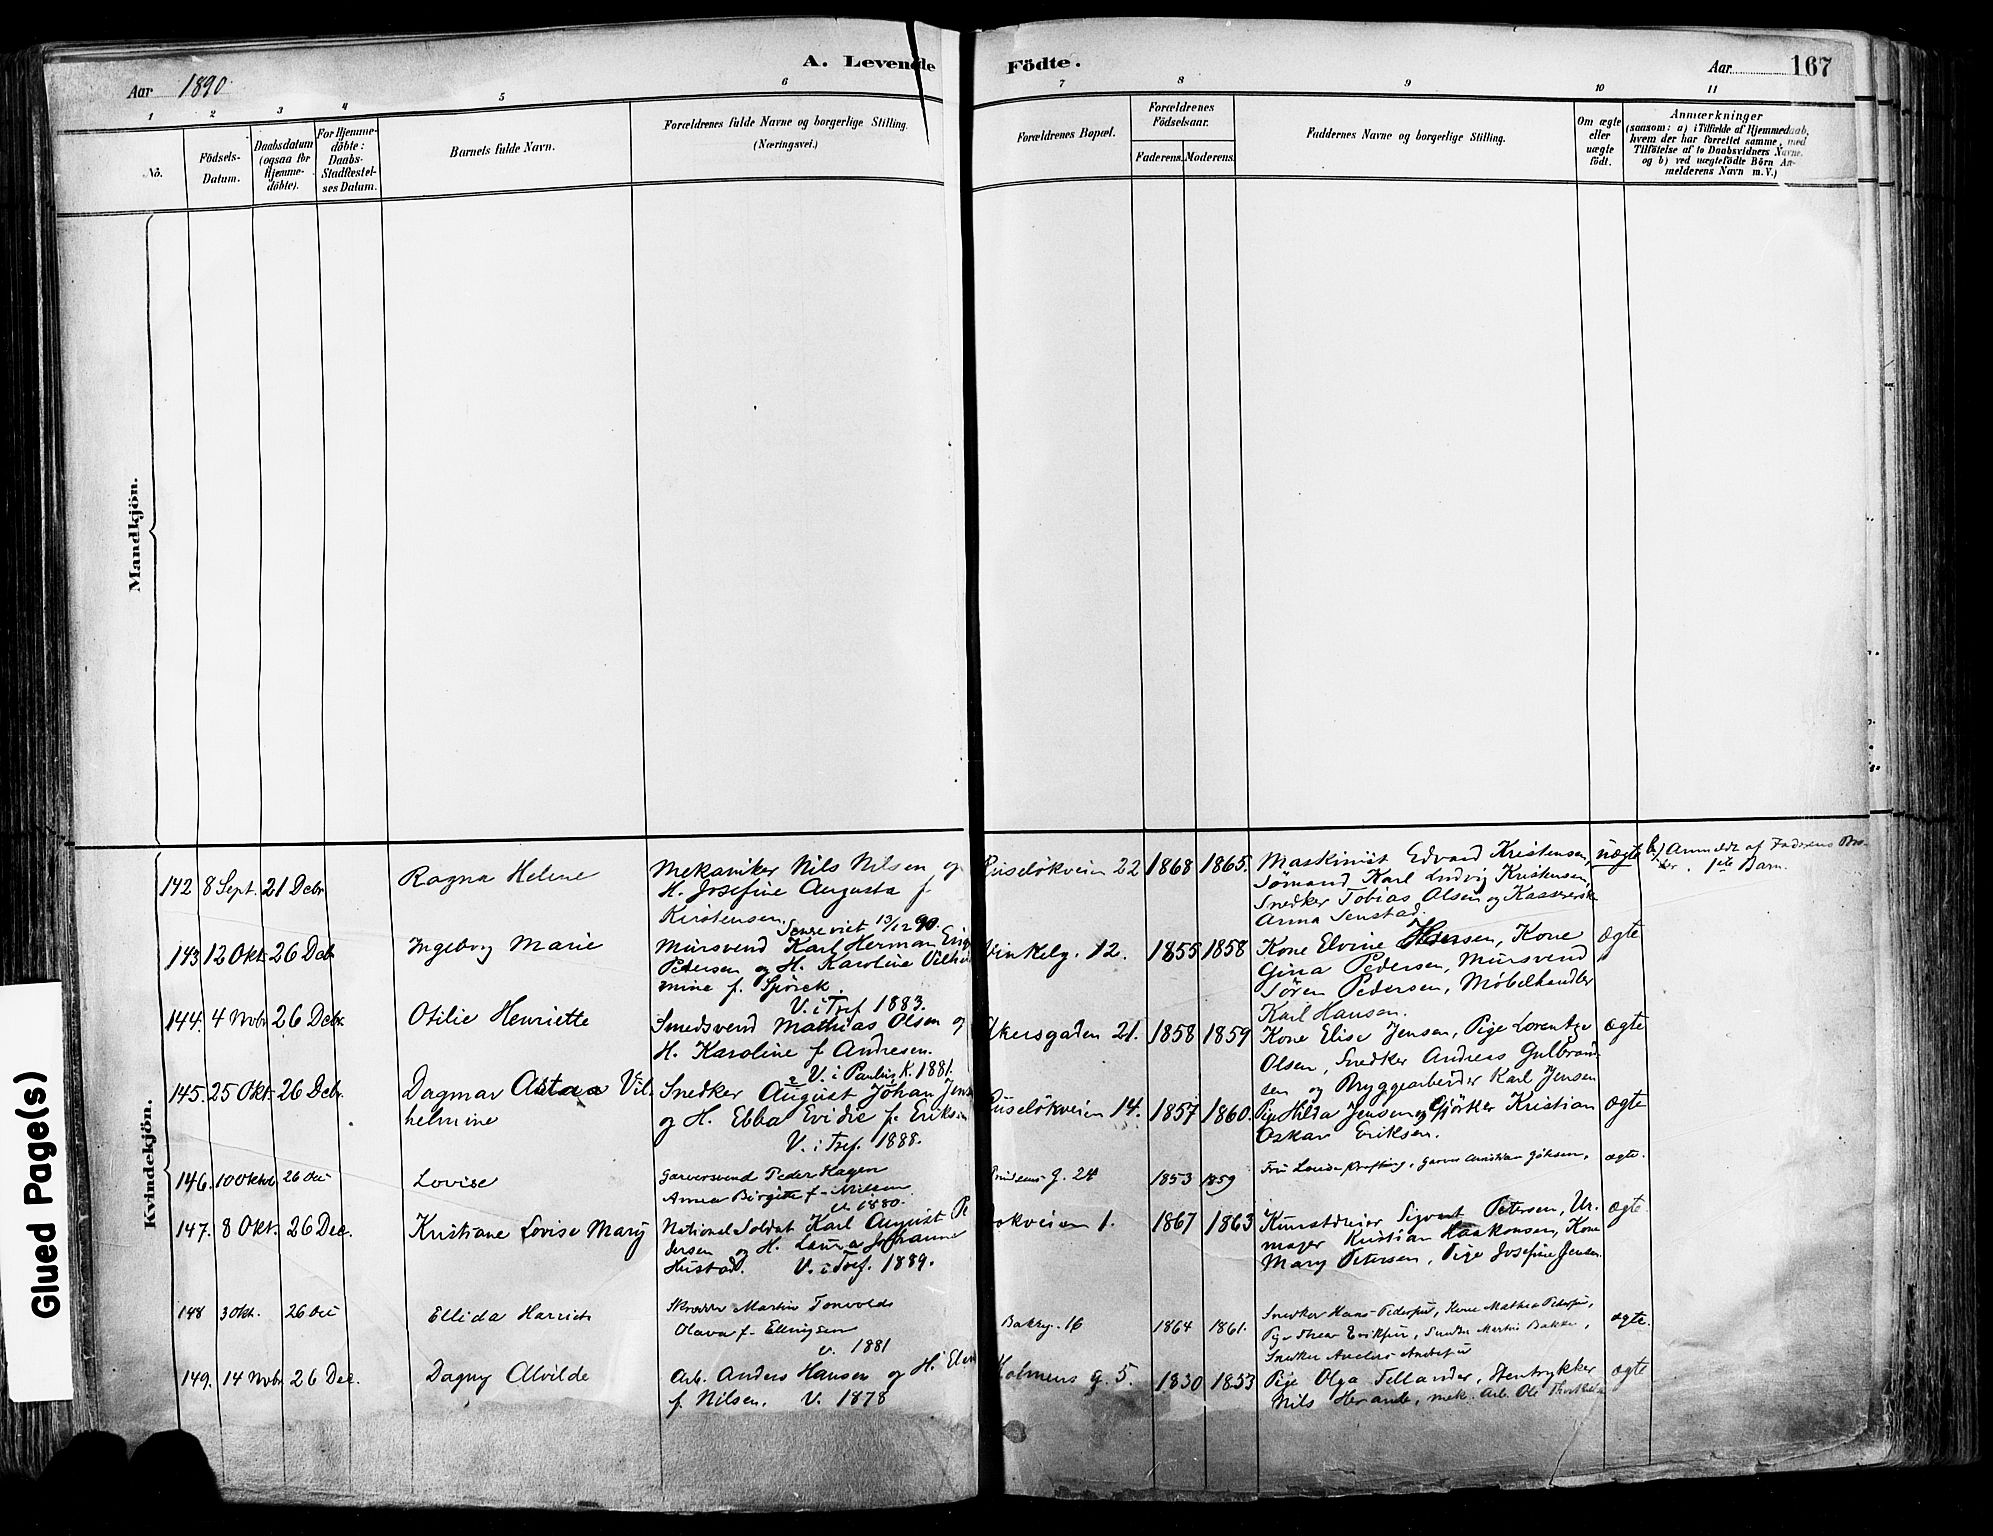 A. Levende
Födte.
Aar 1890.
Aar
167
1 2 3 4 5 6 7 8 9 10 11
No.
Födsels-
Datum.
Daabsdatum
(ogsaa for
Hjemme-
döbte).
For Hjemme-
döbte:
Daabs-
Stadfæstel-
ses Datum.
Barnets fulde Navn.
Forældrenes fulde Navne og borgerlige Stilling.
(Næringsvei.)
Forældrenes Bopæl.
Forældrenes
Födselsaar.
Faderens. Moderens.
Faddernes Navne og borgerlige Stilling.
Om ægte
eller
uægte
födt.
Anmærkninger
(saasom: a) i Tilfælde af Hjemmedaab,
hvem der har forrettet samme, med
Tilföielse af to Daabsvidners Navne.
og b) ved uægtefödte Börn An-
melderens Navn m. V.)
Mandkjön.
Kvindekjön.
142 8 Sept. 21 Debr
Ragna Helene
Mekaniker Nils Nilsen og
H. Josefine Augusta f
Kristensen.
Ruseløkveien 22
1868 1865.
Maskinist Edvard Kristensen,
Sømand Karl Ludvig Kristensen,
Snedker Tobias Olsen og
Anna
uægte
b) Anmeldt af Faderens Bro-
der. 1ste Barn.
143 12 Okt. 26 Debr
Ingeborg Marie
13/12 90.
Mursvend Karl Herman
Petersen og H. Karoline Vilhel
mine f. Spørck.
V. i Tref 1883.
Vinkelg. 12.
1855 1858
Kone Elvine Hansen, Kone
Gina Pedersen, Mursvend
Søren Pedersen, Møbelhandler
Karl Hansen.
ægte
144. 4 Nvbr 26 Debr.
Otilie Henriette
Smedsvend Mathias Olsen og
H. Karoline f Andresen.
V. i Paulus K. 1881.
Akersgaden 21.
1858 1859
Kone Elise Jensen, Pige Lorentze
Olsen, Snedker Andreas Gulbrand
sen og Bryggearbeider Karl Jensen
ægte
145. 25 Okt. 26 Debr.
Dagmar Astaa Vil-
helmine
Snedker August Johan Jens
og H. Ebba Evidie f. Eriksen
V. i Tref. 1888.
Ruseløkveien 14.
1857 1860.
Pige Hilda Jensen og Gjørtler Kristian
Oskar Eriksen.
ægte
146. 10 Oktbr 26 Dec
Lovise
Garversvend Peder Hagen
Anna Birgitte f. Nilsen
V. 1880.
g. 24
1853 1859
Fru Louise
ægte.
147. 8 Okt. 26 Dec.
Kristiane Lovise Mary
National Soldat Karl August Pe
dersen og H. Laura Johanne
Hustad. V. i Tref. 1889.
1.
1867 1863
Kunstdreier Sigvart Petersen, Ur-
mager Kristian Haakonsen, Kone
Mary Petersen, Pige Josefine Jensen
ægte
148 3 Okt. 26 Dec
Ellida Harriet
Skredder Martin Tonvolds
Olava f. Ellingsen
V. 1881
Bakkg. 16
1864 1861.
Snedker Hans Pedersen, Kone Mathea Pedersen,
Pige Thea Eriksen, Snedker Martin Bakken,
Snedker Anders
ægte.
149. 14 Nvbr 26 Dec.
Dagny Alvilde
Arb. Anders Hansen og H.
f. Nilsen. V. 1878
Holmens g. 5.
1830 1853
Pige Olga Tellander, Stentrykker
Nils Herande, mek. Arb. Ole
ægte
Glued Page(s)